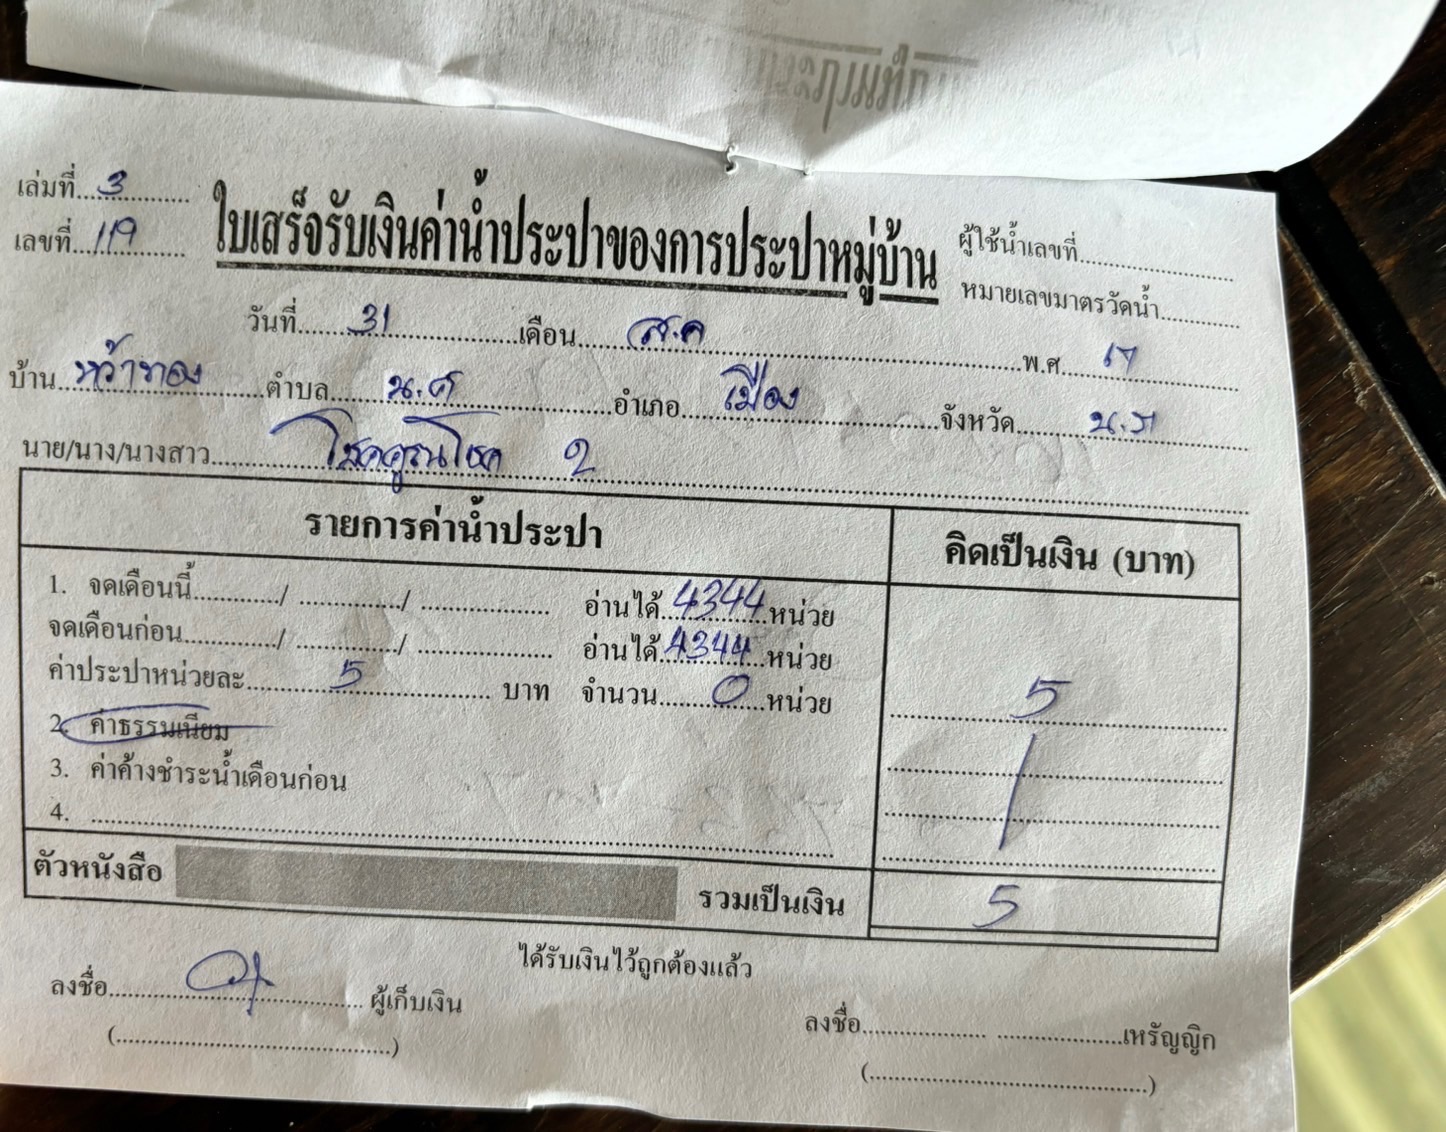 เล่มที่ 3
เลขที่ 119
ใบเสร็จรับเงินค่าน้ำประปาของการประปาหมู่บ้าน
ผู้ใช้น้ำเลขที่
หมายเลขมาตรวัดน้ำ
วันที่ 31 เดือน ส.ค พ.ศ.
บ้าน หว้าทอง ตำบล น.ศ อำเภอ เมือง จังหวัด
นาย/นาง/นางสาว โชคคูณโชค 2
รายการค่าน้ำประปา คิดเป็นเงิน (บาท)
1. จดเดือนนี้ / / อ่านได้ 4344 หน่วย
จดเดือนก่อน / / อ่านได้ 4344 หน่วย
ค่าประปาหน่วยละ 5 บาท จำนวน 0 หน่วย 5
2. ค่าธรรมเนียม
3. ค่าค้างชำระน้ำเดือนก่อน
4.
ตัวหนังสือ รวมเป็นเงิน 5
ได้รับเงินไว้ถูกต้องแล้ว
ลงชื่อ ผู้เก็บเงิน
ลงชื่อ เหรัญญิก